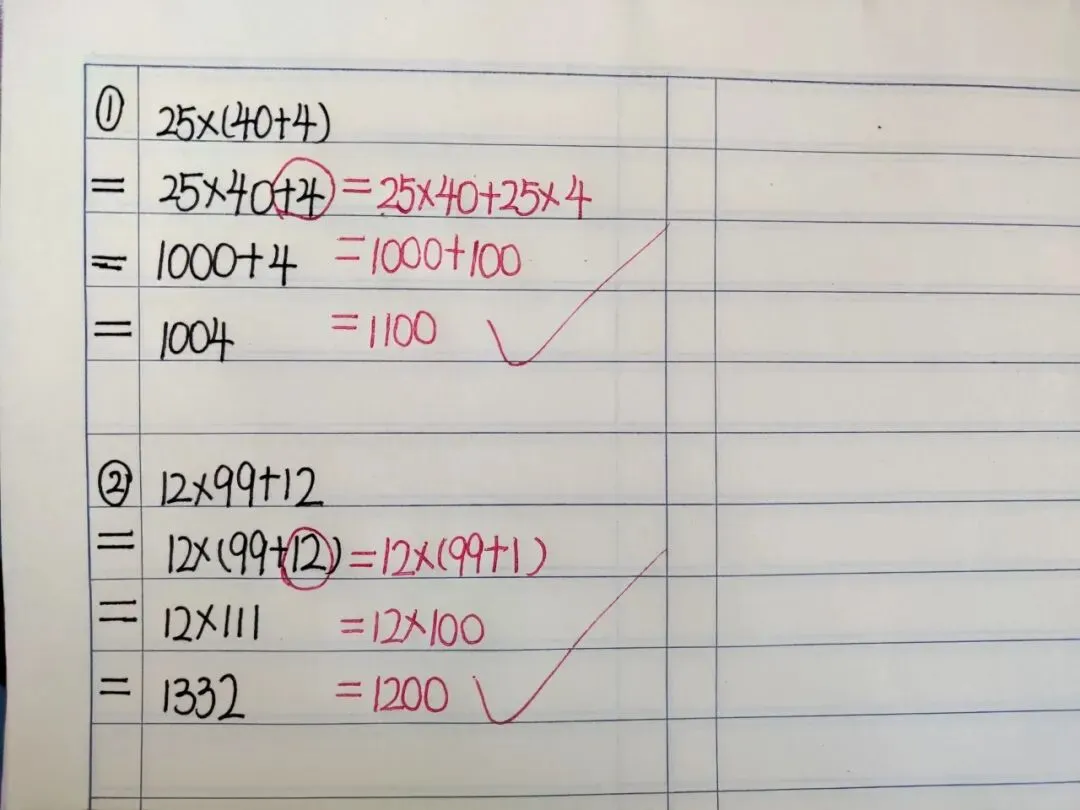 ① 25×(40+4)
= 25×40+4 =25×40+25×4
= 1000+4 =1000+100
= 1004 =1100
② 12×99+12
= 12×(99+12) =12×(99+1)
= 12×111 =12×100
= 1332 =1200